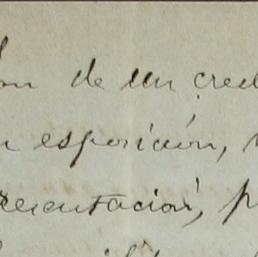 on de un cred
n esporición,
resentación, p